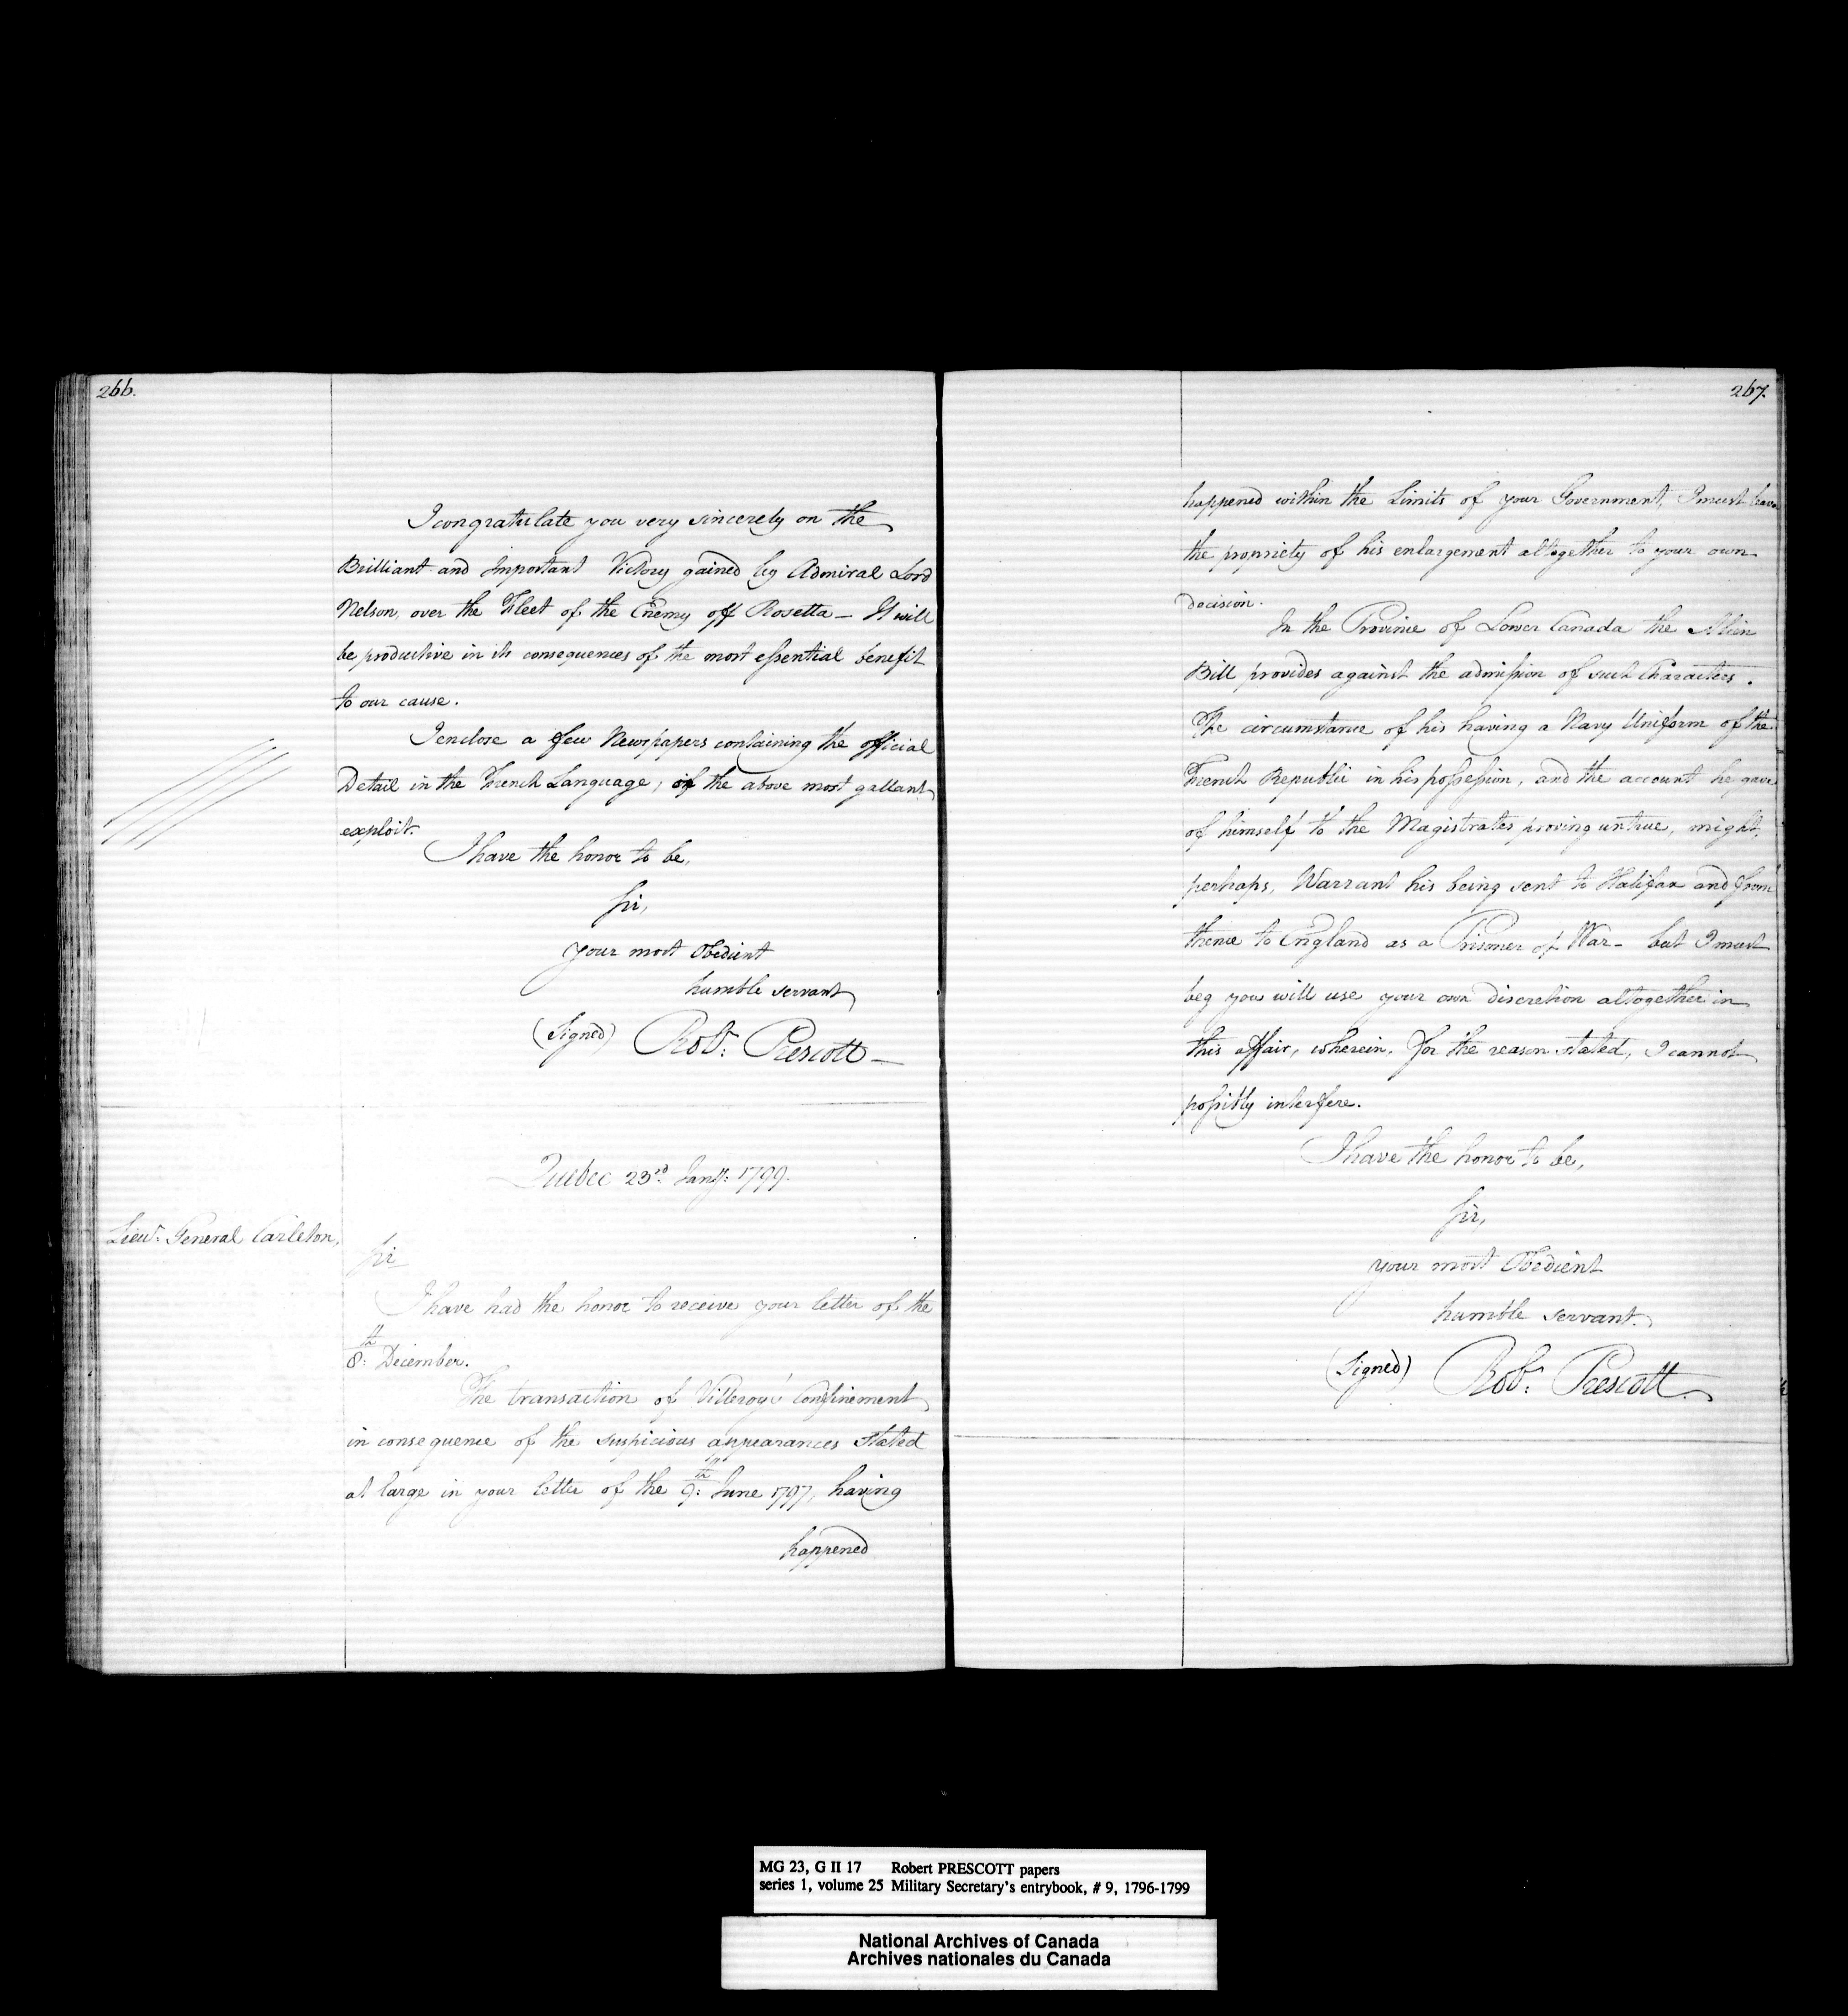 266.
I congratulate you very sincerely on the
Brilliant and Important Victory gained by Admiral Lord
Nelson, over the Fleet of the Enemy off Rosetta — It will
be productive in its consequences of the most essential benefit
to our cause.
I enclose a few Newspapers containing the official
Detail in the French Language, of the above most gallant
exploit.
I have the honor to be,
Sir,
your most Obedient
humble servant
(Signed) Robt: Prescott —
Quebec 23rd: Jany: 1799.
Lieut: General Carleton,
Sir
I have had the honor to receive your letter of the
8th: December.
The transaction of Villeroy's Confinement
in consequence of the suspicious appearances stated
at large in your letter of the 9th: June 1797, having
happened
267.
happened within the Limits of your Government, I must leave
the propriety of his enlargement altogether to your own
Decision.
In the Province of Lower Canada the Alien
Bill provides against the admission of such Characters.
The circumstance of his having a Navy Uniform of the
French Republic in his possession, and the account he gave
of himself to the Magistrates proving untrue, might,
perhaps, Warrant his being sent to Halifax and from
thence to England as a Prisoner of War — but I must
beg you will use your own Discretion altogether in
this affair, wherein, for the reason stated, I cannot
possibly interfere.
I have the honor to be,
Sir,
your most Obedient
humble servant.
(Signed) Robt: Prescott.
MG 23, G II 17 Robert PRESCOTT papers
series 1, volume 25 Military Secretary's entrybook, # 9, 1796-1799
National Archives of Canada
Archives nationales du Canada